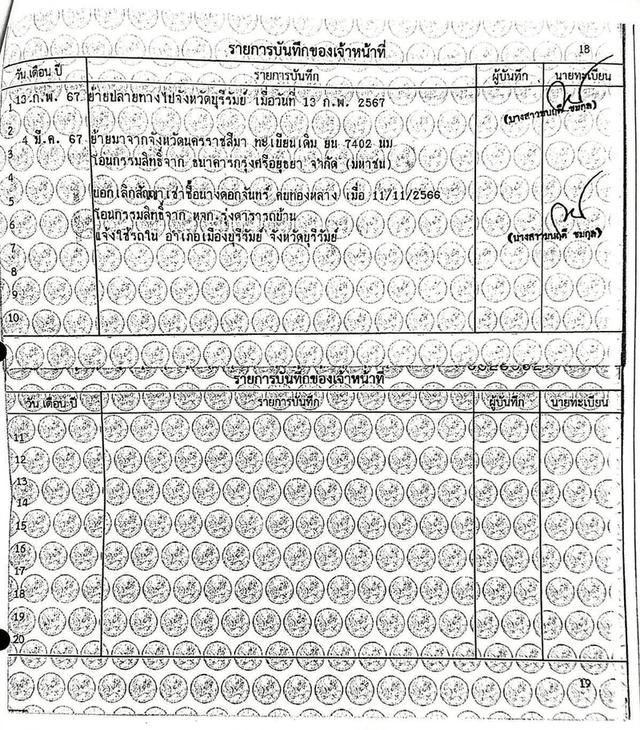 รายการบันทึกของเจ้าหน้าที่ 18
วัน เดือน ปี รายการบันทึก ผู้บันทึก นายทะเบียน
1 13 ก.พ. 67 ย้ายปลายทางไปจังหวัดบุรีรัมย์ เมื่อวันที่ 13 ก.พ. 2567
(นางสาวมนฤดี ชมกุล)
2
4 มี.ค. 67 ย้ายมาจากจังหวัดนครราชสีมา ทะเบียนเดิม ยน 7402 นม
3 โอนกรรมสิทธิ์จาก ธนาคารกรุงศรีอยุธยา จำกัด (มหาชน)
4
5 บอกเลิกสัญญาเช่าซื้อนางดอกจันทร์ คบทองหลาง เมื่อ 11/11/2566
6 โอนกรรมสิทธิ์จาก หจก.รุ่งดารารถบ้าน
7 แจ้งใช้รถใน อำเภอเมืองบุรีรัมย์ จังหวัดบุรีรัมย์
(นางสาวมนฤดี ชมกุล)
8
9
10
รายการบันทึกของเจ้าหน้าที่
วัน เดือน ปี รายการบันทึก ผู้บันทึก นายทะเบียน
11
12
13
14
15
16
17
18
19
20
19